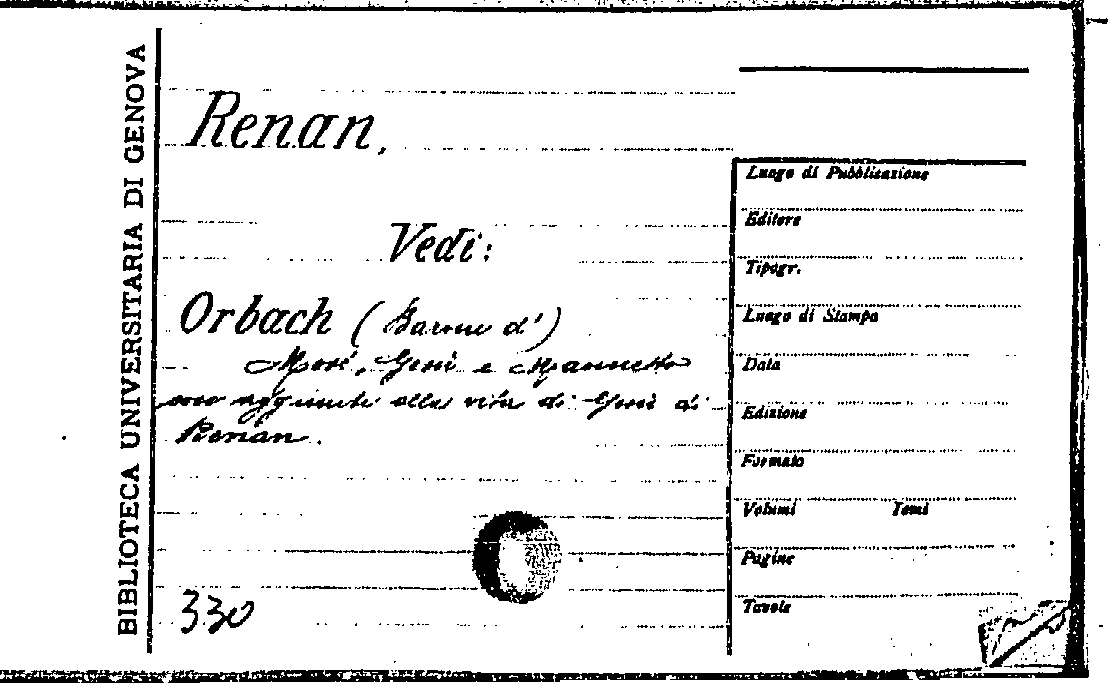 BIBLIOTECA UNIVERSITARIA DI GENOVA
Renan,
Vedi:
Orbach (Barone d')
Mosè, Gesù e Maometto
aggiunte alla vita di Gesù di
Renan.
330
Luogo di Pubblicazione
Editore
Tipogr.
Luogo di Stampa
Data
Edizione
Formato
Volumi Tomi
Pagine
Tavole